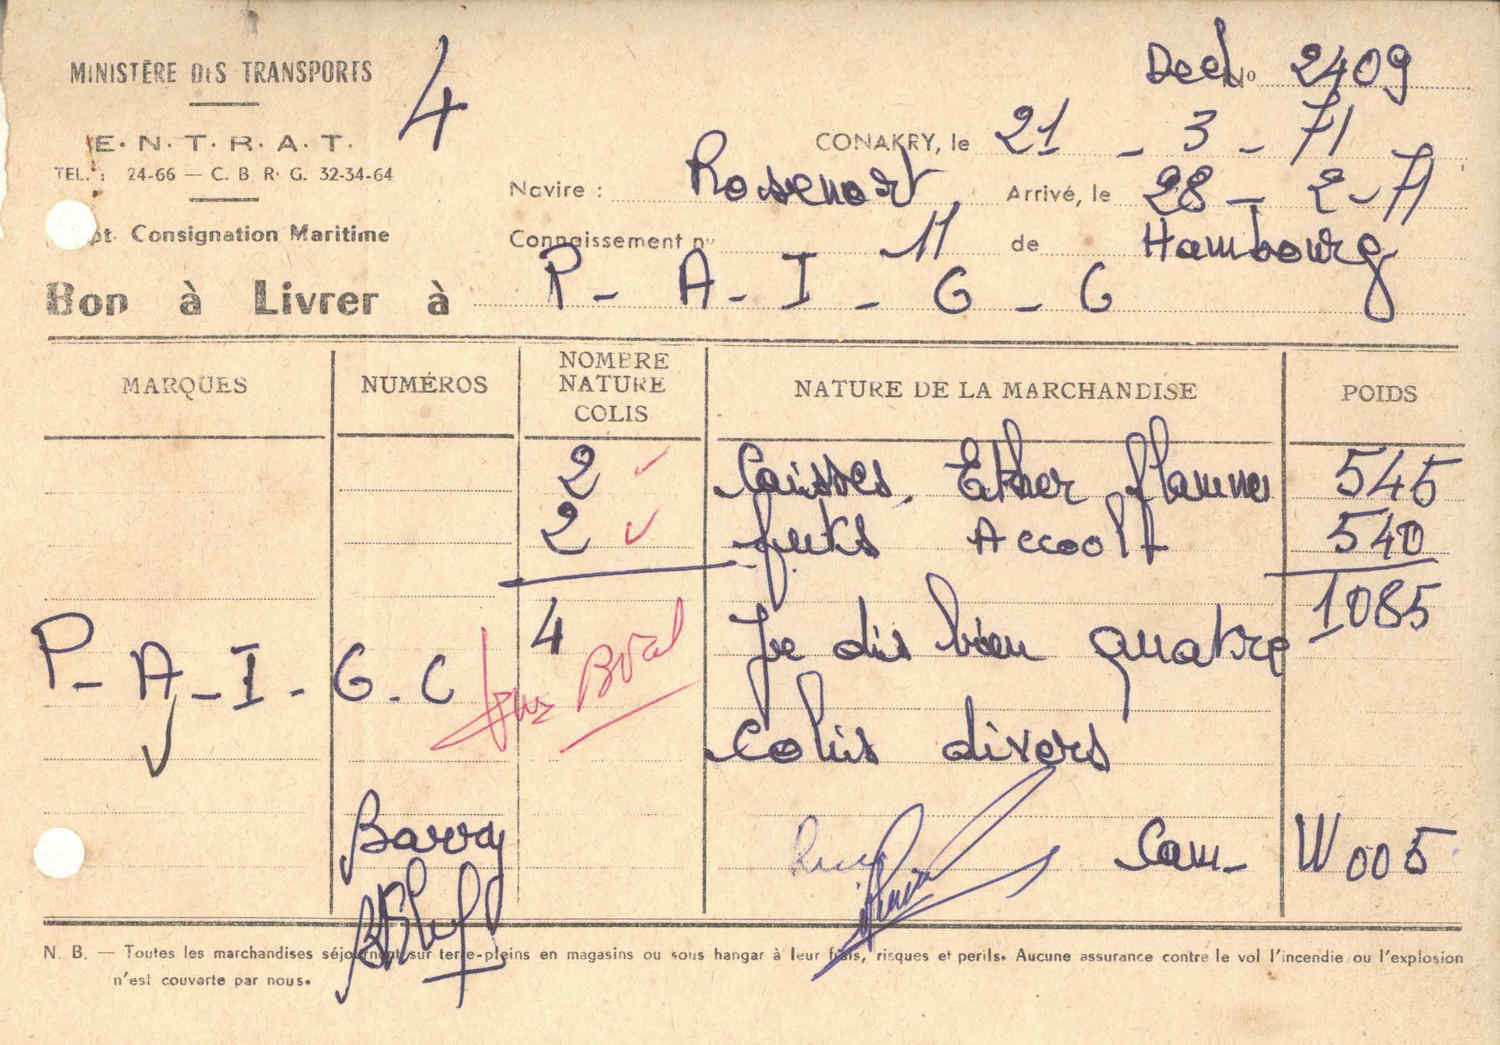 MINISTÈRE DES TRANSPORTS
4
Decl No 2409
E. N. T. R. A. T.
CONAKRY, le 21 - 3 - 71
TEL. : 24-66 — C. B. R. G. 32-34-64
Navire : Rosenort Arrivé, le 28 - 2 - 71
pt. Consignation Maritime
Connaissement n° 11 de Hambourg
Bon à Livrer à P - A - I - G - C
MARQUES NUMÉROS NOMBRE NATURE COLIS NATURE DE LA MARCHANDISE POIDS
2 Caisses. Ether flamme 545
2 futs Accoolt 540
4 1085
Je dis bien quatre
P - A - I - G - C
colis divers
Barry
Cam - W 005
N. B. — Toutes les marchandises séjournent sur terre-pleins en magasins ou sous hangar à leur frais, risques et perils. Aucune assurance contre le vol l'incendie ou l'explosion
n'est couverte par nous.